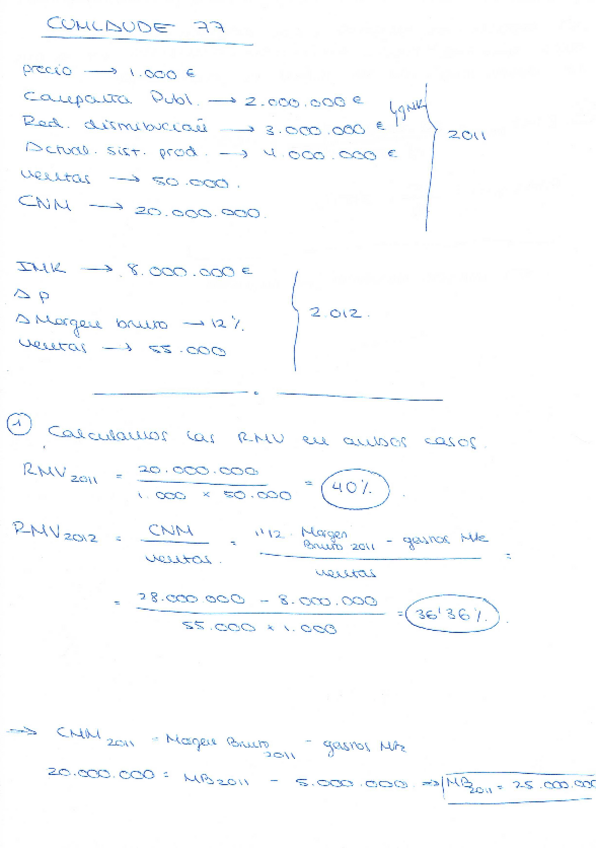 CUMLAUDE 77
precio → 1.000 €
Campaña Publ. → 2.000.000 €
Red. distribución → 3.000.000 €
Actual. sist. prod. → 4.000.000 €
ventas → 50.000.
CNM → 20.000.000.
2011
IMK → 8.000.000 €
Δ P
Δ Margen bruto → 12%
ventas → 55.000
2.012.
① Calculamos las RMV en ambos casos.
RMV2011 = 20.000.000 / 1.000 x 50.000 = 40%.
RMV2012 = CNM / ventas. = 1'12. Margen Bruto 2011 - gastos Mk / ventas =
= 28.000.000 - 8.000.000 / 55.000 x 1.000 = 36'36%.
→ CNM2011 = Margen Bruto2011 - gastos Mk
20.000.000 = MB2011 - 5.000.000 → MB2011 = 25.000.000